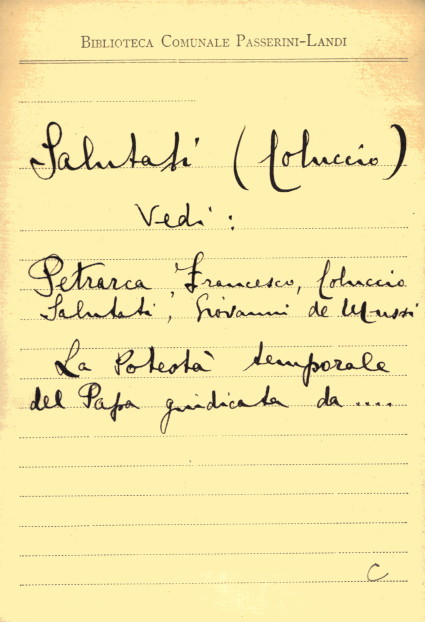 BIBLIOTECA COMUNALE PASSERINI-LANDI
Salutati (Coluccio)
Vedi:
Petrarca Francesco, Coluccio
Salutati, Giovanni de Mussi
La Potestà temporale
del Papa giudicata da ....
C